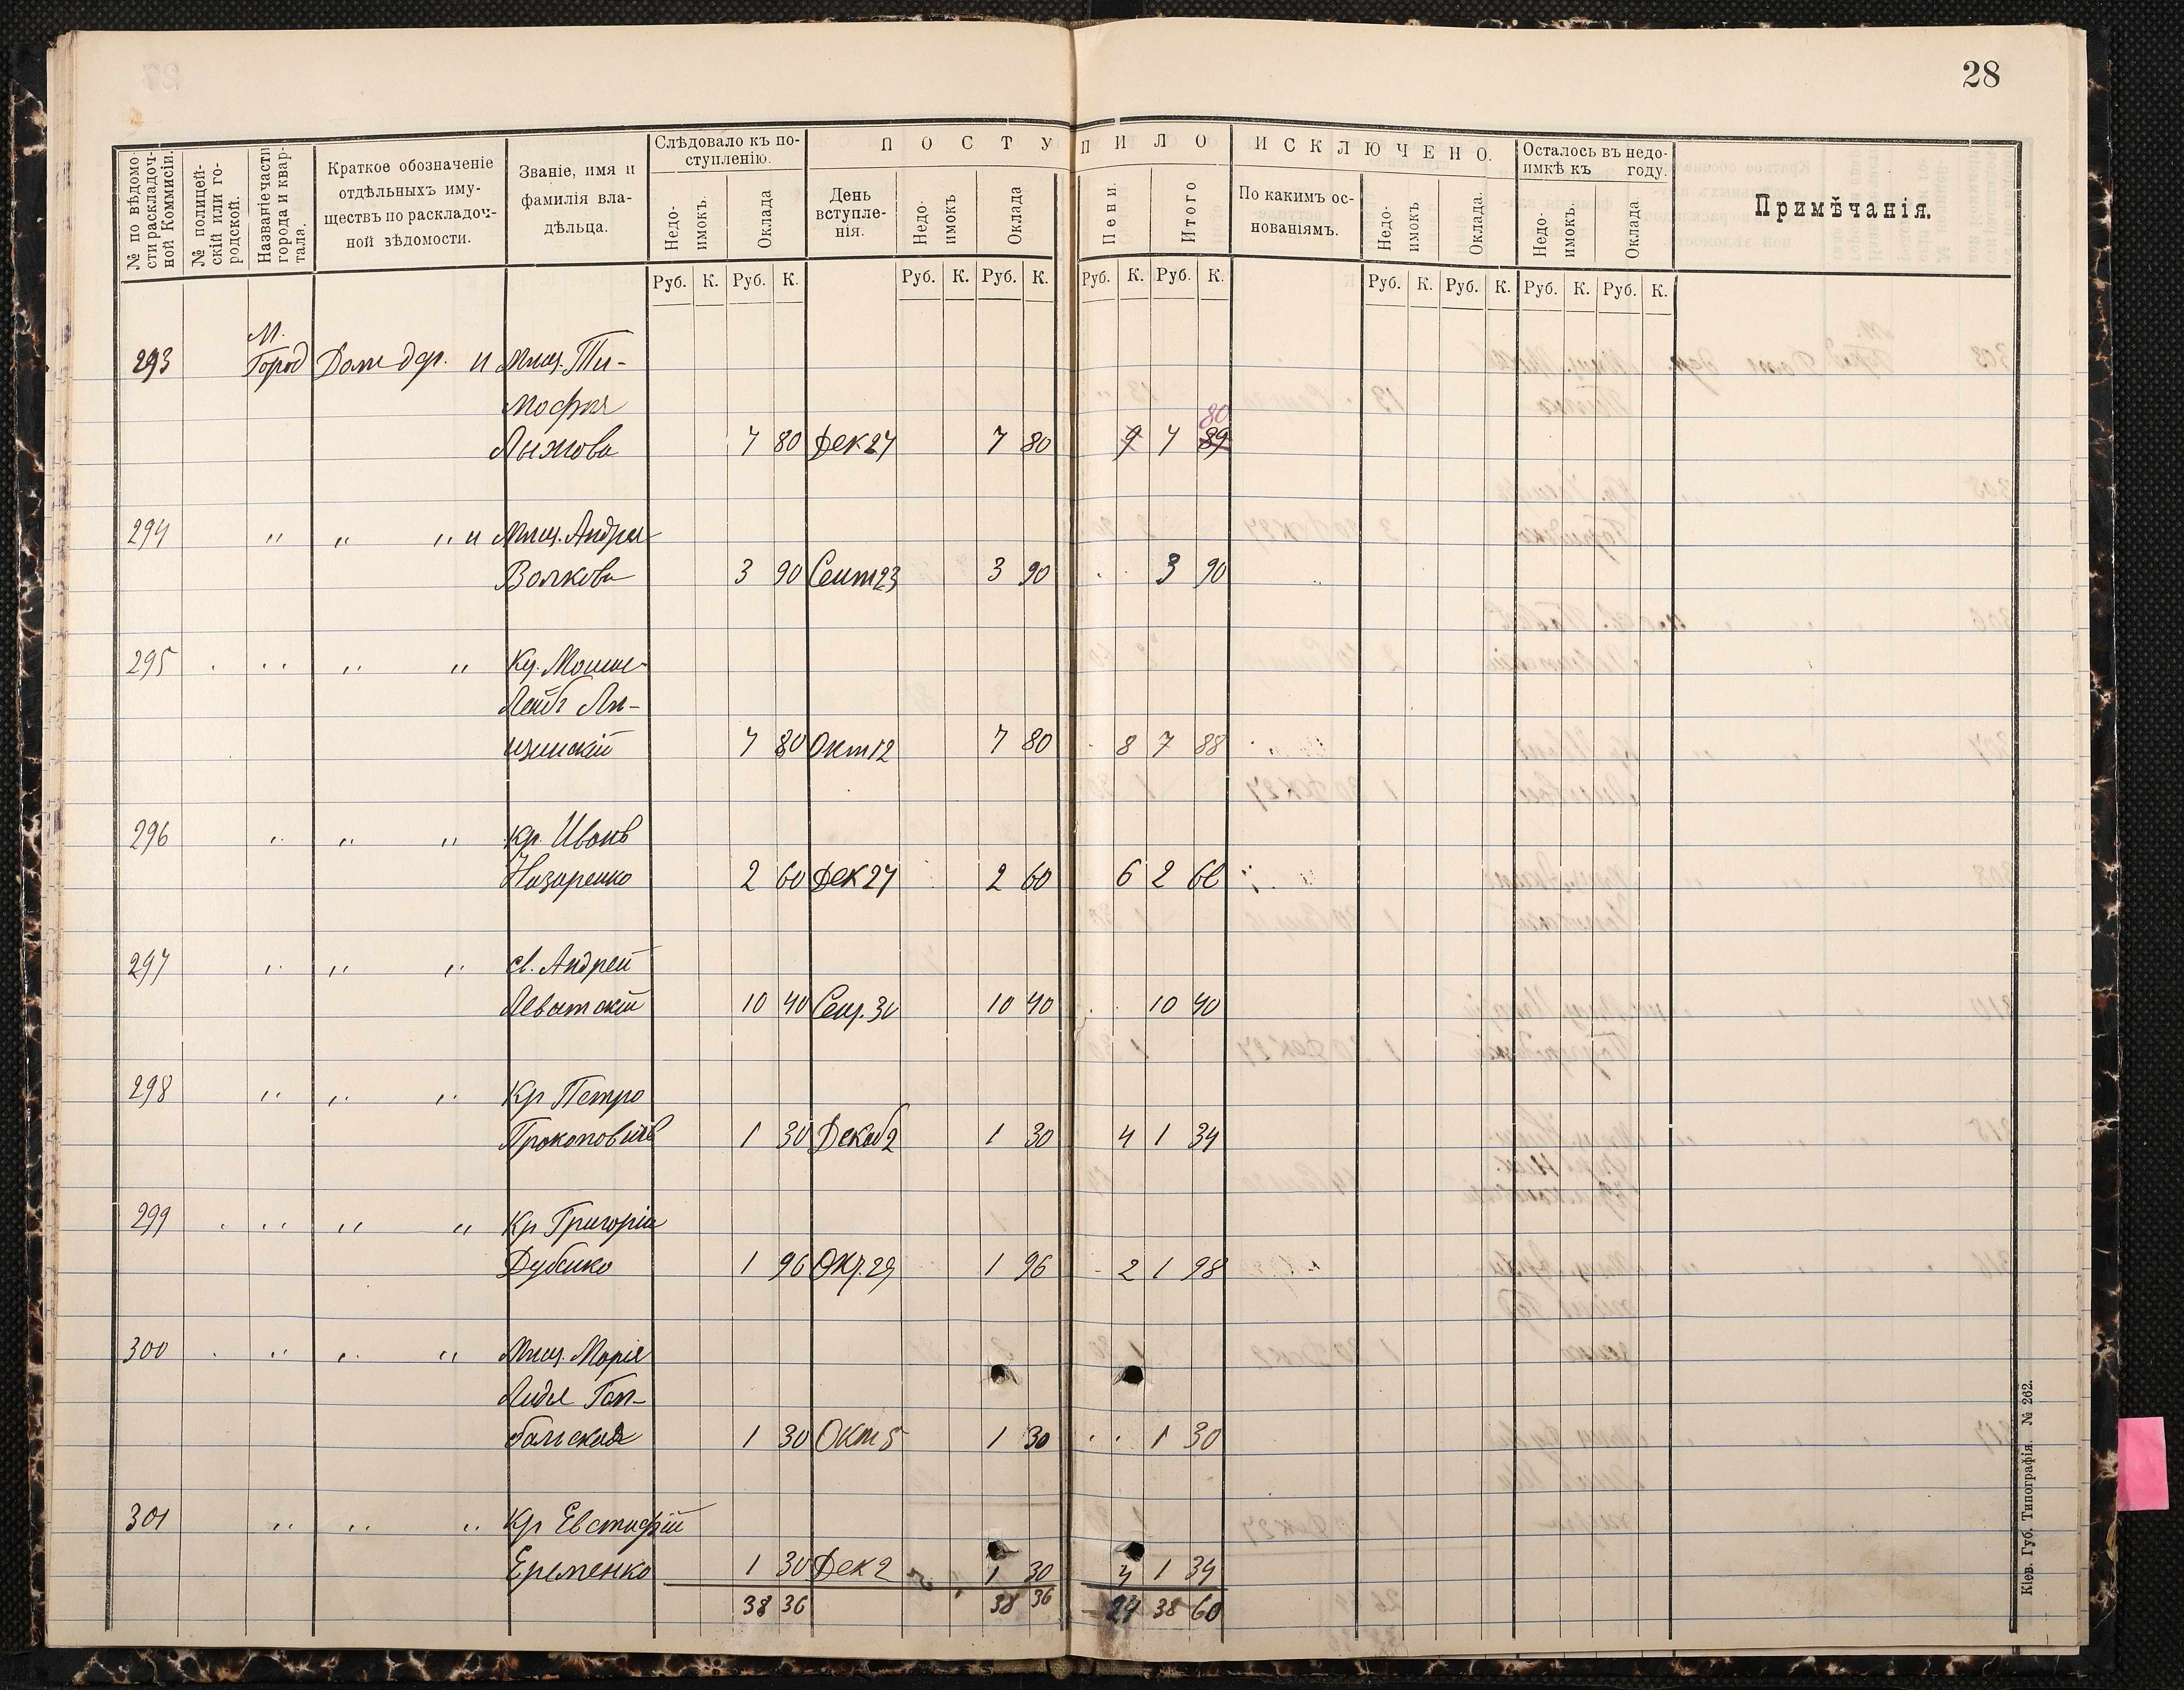 28
№ по вѣдомо-
сти раскладоч-
ной Коммисіи.
№ полицей-
скій или го-
родской.
Названіе части
города и квар-
тала.
Краткое обозначеніе
отдѣльныхъ иму-
ществъ по раскладоч-
ной зѣдомости.
Званіе, имя и
фамилія вла-
дѣльца.
Слѣдовало къ по-
ступленію.
Недо-
имокъ.
Оклада
ПОСТУПИЛО
День
вступле-
нія.
Недо-
имокъ
Оклада
Пени.
Итого
ИСКЛЮЧЕНО.
По какимъ ос-
нованіямъ.
Недо-
имокъ
Оклада.
Осталось въ недо-
имкѣ къ году.
Недо-
имокъ.
Оклада
Примѣчанія.
Руб. К. Руб. К. Руб. К. Руб. К. Руб. К. Руб. К. Руб. К. Руб. К. Руб. К. Руб. К.
М.
293 Город Дом дер. и Мѣщ. Ти-
мофея
80
Лыжова 7 80 Дек 27 7 80 9 7 89
294 " " " и Мѣщ. Андрея
Волкова 3 90 Сент 23 3 90 3 90
295 " " " Куп. Мошис
Лейб Ли-
7 80 Окт 12 7 80 8 7 88
296 " " " Кр. Иванъ
Назаренко 2 60 Дек 27 2 60 6 2 66
297 " " " св. Андрей
Левитскій 10 40 Сен. 30 10 40 10 40
298 " " " Кр Петро
Прокоповичъ 1 30 Декаб 2 1 30 4 1 34
299 " " " Кр Григорій
Дубенко 1 96 Окт. 29 1 96 2 1 98
300 " " " Мѣщ. Марія
Лидя Гам-
бальская 1 30 Окт 5 1 30 1 30
301 " " " Кр Евстафій
Еременко 1 30 Дек 2 1 30 4 1 34
38 36 38 36 24 38 60
Кіев. Губ. Типографія. № 262.